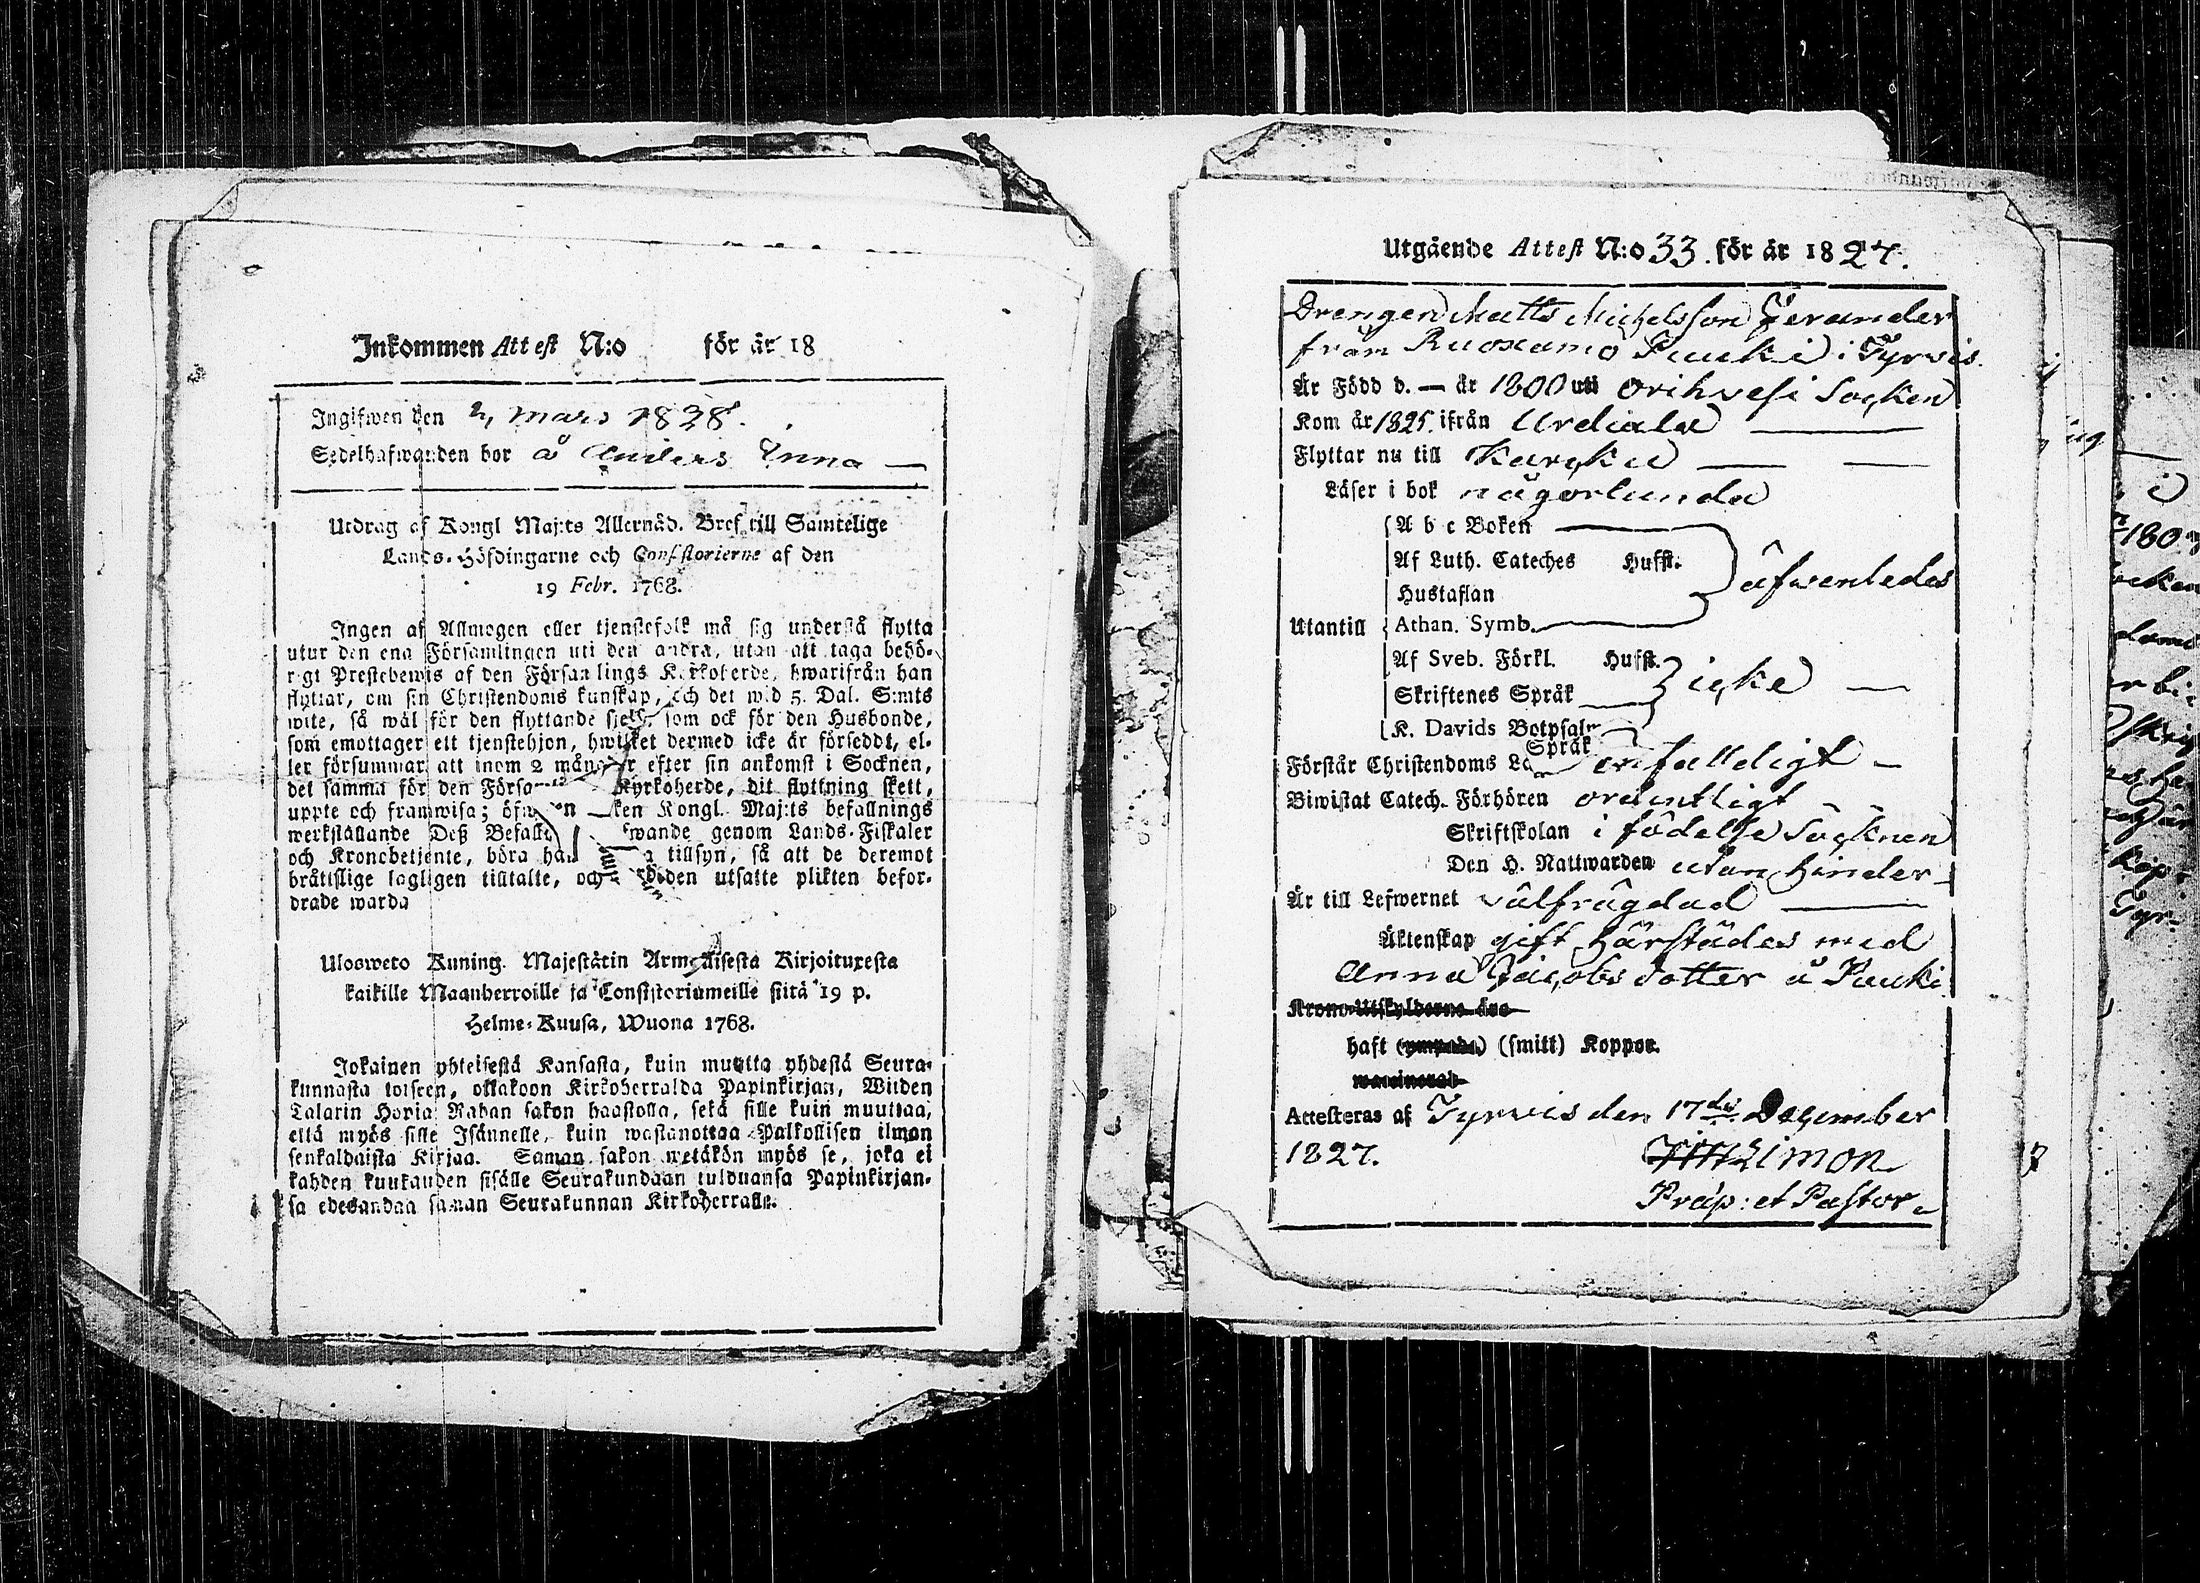 Inkommen Attest N:o för år 18
Ingifwen den 2 mars 1828.
Sedelhafwanden bor å Anders Inna —
Utdrag af Kongl Maj:ts Allernåd. Bref till Samtelige
Lands-Höfdingarne och Consistorierne af den
19 Febr. 1768.
Ingen af Allmogen eller tjenstefolk må sig understå flytta
utur den ena Församlingen uti den andra, utan att taga behö-
rigt Prestebewis af den Församlings Kyrkoherde, hwarifrån han
flyttar, om sin Christendoms kunskap, och det wid 5. Dal. S:mts
wite, så wäl för den flyttande sjelf, som ock för den Husbonde,
som emottager ett tjenstehjon, hwilket dermed icke är försedt, el-
ler försummar att inom 2 månader efter sin ankomst i Socknen,
det samma för den Försam Kyrkoherde, dit flyttning skett,
uppte och framwisa; öfw en ken Kongl. Maj:ts befallnings
werkställande Deß Befall wande genom Lands-Fiskaler
och Kronobetjente, böra ha a tillsyn, så att de deremot
bråttslige lagligen tilltalte, och den utsatte plikten befor-
drade warda
Ulosweto Kuning. Majestätin Armollisesta Kirjoituxesta
kaikille Maanherroille ja Consistoriumeille siitä 19 p.
Helme-Kuusa, Wuona 1768.
Jokainen yhteisestä Kansasta, kuin muutta yhdestä Seura-
kunnasta toiseen, ottakoon Kirkoherralda Papinkirjan, Wiiden
Talarin Hopia Rahan sakon haastolla, sekä sille kuin muuttaa,
että myös sille Isännelle, kuin wastanottaa Palkollisen ilman
senkaldaista Kirjaa. Saman sakon wetäkön myös se, joka ei
kahden kuukauden sisälle Seurakundaan tulduansa Papinkirjan-
sa edesandaa saman Seurakunnan Kirkoherralle.
Utgående Attest N:o 33. för år 1827.
Drengen Matts Michelsson Ferander
från Ruoxamo Pauki i Tyrvis.
Är Född d. — år 1800 uti Orihvesi Socken
Kom år 1825. ifrån Urdiala —
Flyttar nu till Karcku — —
Läser i bok någorlunda
A b c Boken —
Af Luth. Cateches Hufst.
Hustaflan
åfwenledes
Utantill Athan. Symb.
Af Sveb. Förkl. Hufst.
icke —
Skriftenes Språk
K. Davids Botpsalm
Språk
Förstår Christendoms Lä enfalldigt —
Biwistat Catech. Förhören ordentligt
Skriftskolan i födelse Socknen
Den H. Nattwarden utan hinder —
Är till Lefwernet välfrägdad —
Äktenskap gift härstädes med
Anna Jacobsdotter å Pauki
Krono-Utskylderne äro
haft (ympade) (smitt) Koppor.
waccinerad
Attesteras af Tyrvis den 17de December
1827. Limon
Præp: et Pastor.